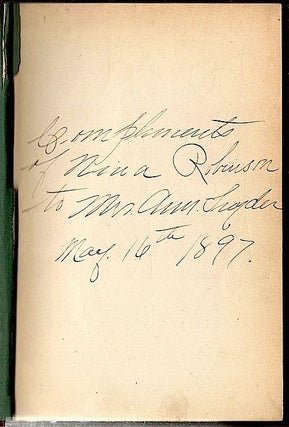 Compliments
of Nina Robinson
to Mrs. Ann. Snyder
May. 16th 1897.